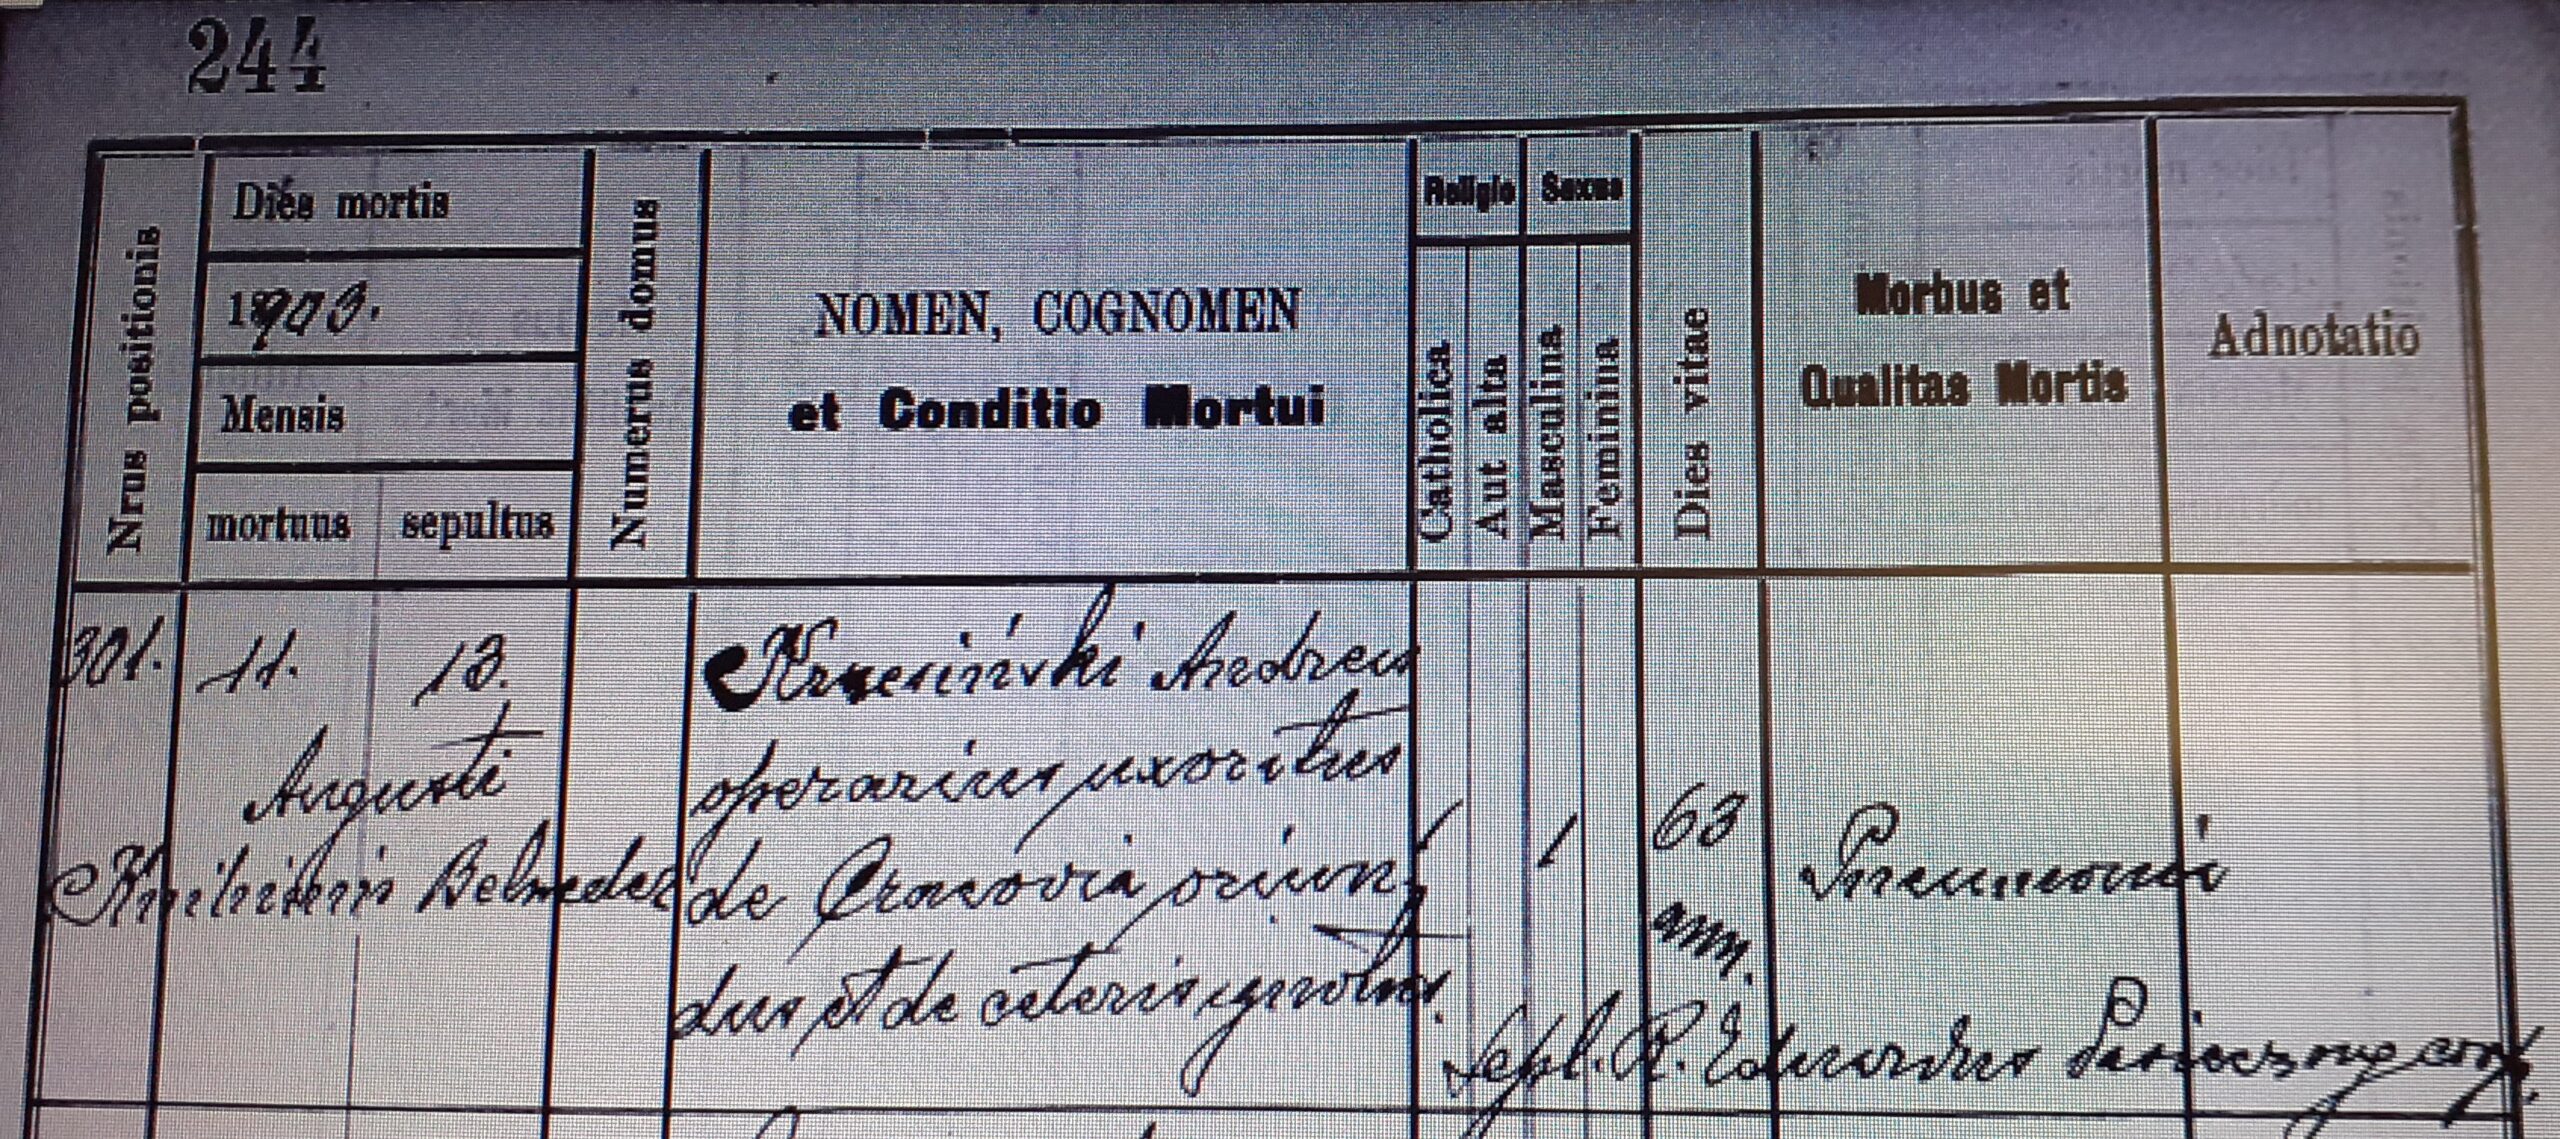 244
Nrus positionis
Dies mortis
1903.
Mensis
mortuus sepultus
Numerus domus
NOMEN, COGNOMEN
et Conditio Mortui
Religio
Catholica
Aut alta
Sexus
Masculina
Feminina
Dies vitae
Morbus et
Qualitas Mortis
Adnotatio
301. 11. 13.
Augusti
Knihinin Belweder
Krzesiński Andreas
operarius uxoratus
de Cracovia oriun
dus et de ceteris ignotus.
1 1
63
ann.
Pneumonia
Sepl. R. Eduardus